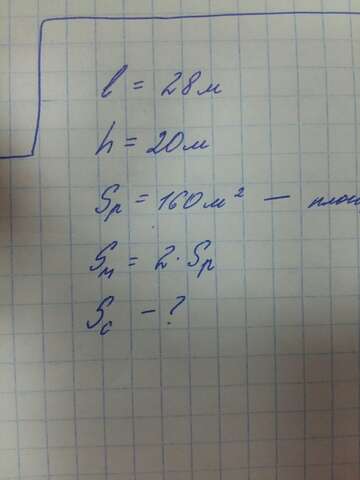 l = 28м
h = 20м
Sр = 160м² —
Sм = 2 · Sр
Sс — ?